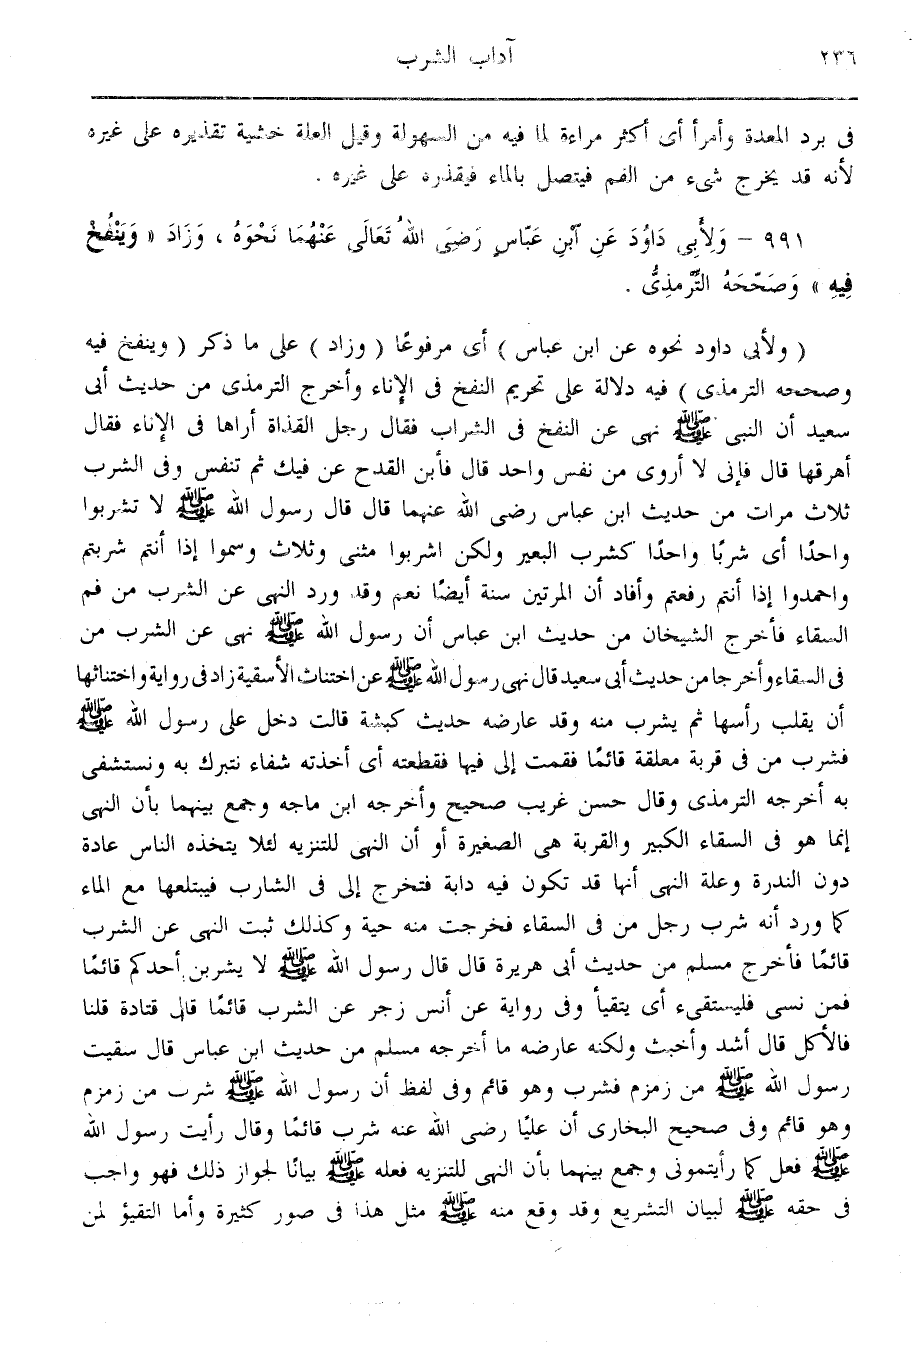 ٢٣٦
آداب الشرب
فى برد المعدة وأمرأ أى أكثر مراءة لما فيه من السهولة وقيل العلة خشية تقذيره على غيره
لأنه قد يخرج شىء من الفم فيتصل بالماء فيقذره على غيره .
٩٩١ – وَلِأَبِى دَاوُدَ عَنِ ٱبْنِ عَبَّاسٍ رَضِىَ اللهُ تَعَالَى عَنْهُمَا نَحْوَهُ ، وَزَادَ « وَيَنْفُخْ
فِيهِ » وَصَحَّحَهُ التِّرْمذِىُّ .
( ولأبى داود نحوه عن ابن عباس ) أى مرفوعًا ( وزاد ) على ما ذكر ( وينفخ فيه
وصححه الترمذى ) فيه دلالة على تحريم النفخ فى الإناء وأخرج الترمذى من حديث أبى
سعيد أن النبى ﷺ نهى عن النفخ فى الشراب فقال رجل القذاة أراها فى الإناء فقال
أهرقها قال فإنى لا أروى من نفس واحد قال فأبن القدح عن فيك ثم تنفس وفى الشرب
ثلاث مرات من حديث ابن عباس رضى الله عنهما قال قال رسول الله ﷺ لا تشربوا
واحدًا أى شربًا واحدًا كشرب البعير ولكن اشربوا مثنى وثلاث وسموا إذا أنتم شربتم
واحمدوا إذا أنتم رفعتم وأفاد أن المرتين سنة أيضًا نعم وقد ورد النهى عن الشرب من فم
السقاء فأخرج الشيخان من حديث ابن عباس أن رسول الله ﷺ نهى عن الشرب من
فى السقاء وأخرجا من حديث أبى سعيد قال نهى رسول الله ﷺ عن اختناث الأسقية زاد فى رواية واختناثها
أن يقلب رأسها ثم يشرب منه وقد عارضه حديث كبشة قالت دخل على رسول الله ﷺ
فشرب من فى قربة معلقة قائمًا فقمت إلى فيها فقطعته أى أخذته شفاء نتبرك به ونستشفى
به أخرجه الترمذى وقال حسن غريب صحيح وأخرجه ابن ماجه وجمع بينهما بأن النهى
إنما هو فى السقاء الكبير والقربة هى الصغيرة أو أن النهى للتنزيه لئلا يتخذه الناس عادة
دون الندرة وعلة النهى أنها قد تكون فيه دابة فتخرج إلى فى الشارب فيبتلعها مع الماء
كما ورد أنه شرب رجل من فى السقاء فخرجت منه حية وكذلك ثبت النهى عن الشرب
قائمًا فأخرج مسلم من حديث أبى هريرة قال قال رسول الله ﷺ لا يشربن أحدكم قائمًا
فمن نسى فليستقىء أى يتقيأ وفى رواية عن أنس زجر عن الشرب قائمًا قال قتادة قلنا
فالأكل قال أشد وأخبث ولكنه عارضه ما أخرجه مسلم من حديث ابن عباس قال سقيت
رسول الله ﷺ من زمزم فشرب وهو قائم وفى لفظ أن رسول الله ﷺ شرب من زمزم
وهو قائم وفى صحيح البخارى أن عليًا رضى الله عنه شرب قائمًا وقال رأيت رسول الله
ﷺ فعل كما رأيتمونى وجمع بينهما بأن النهى للتنزيه فعله ﷺ بيانًا لجواز ذلك فهو واجب
فى حقه ﷺ لبيان التشريع وقد وقع منه ﷺ مثل هذا فى صور كثيرة وأما التقيؤ لمن